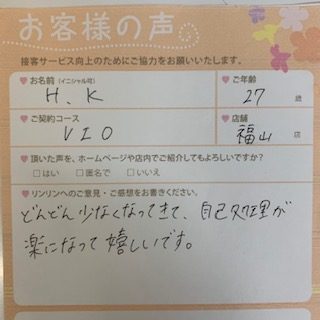 お客様の声
接客サービス向上のためにご協力をお願いいたします。
♥お名前(イニシャル可)
H.K
♥ご年齢
27 歳
♥ご契約コース
VIO
♥店舗
福山 店
♥頂いた声を、ホームページや店内でご紹介してもよろしいですか?
□はい □匿名で □いいえ
♥リンリンへのご意見・ご感想をお書きください。
どんどん少なくなってきて、自己処理が
楽になって嬉しいです。